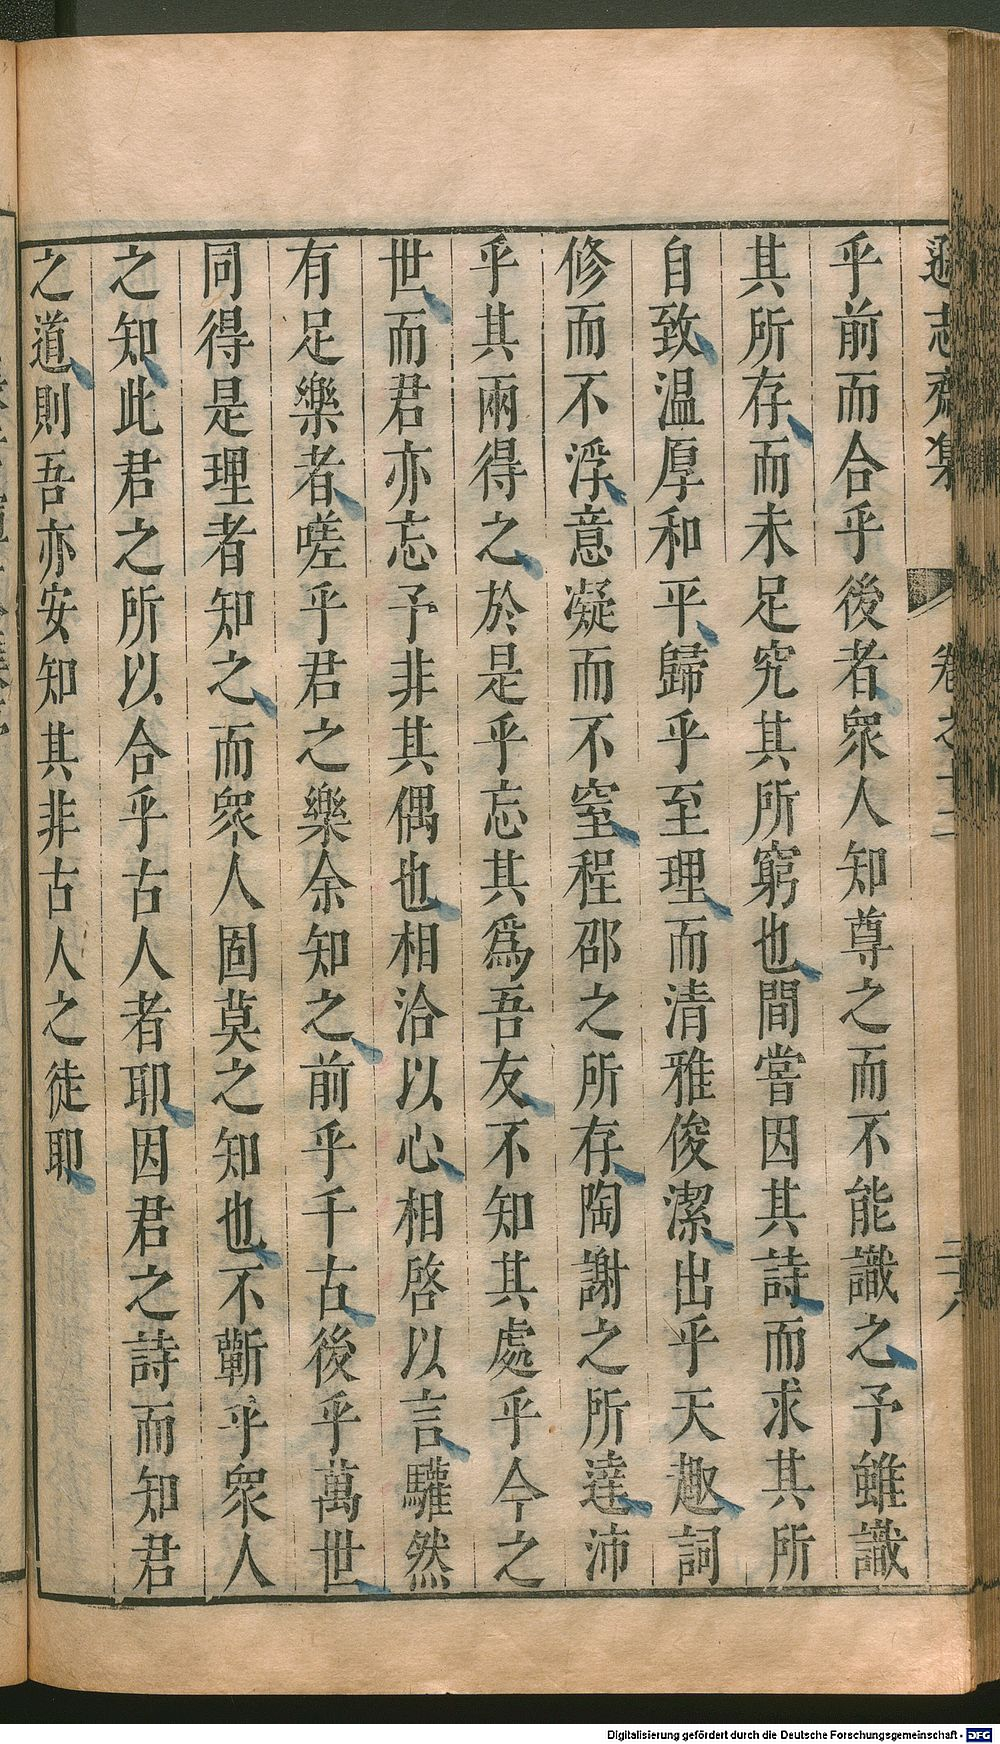 遜志齋集 卷之十二 二十八
乎前而合乎後者衆人知尊之而不能識之予雖識
其所存而未足究其所窮也間嘗因其詩而求其所
自致温厚和平歸乎至理而清雅俊潔出乎天趣詞
修而不浮意凝而不窒程邵之所存陶謝之所達沛
乎其兩得之於是乎忘其爲吾友不知其處乎今之
世而君亦忘予非其偶也相洽以心相啓以言驩然
有足樂者嗟乎君之樂余知之前乎千古後乎萬世
同得是理者知之而衆人固莫之知也不蘄乎衆人
之知此君之所以合乎古人者耶因君之詩而知君
之道則吾亦安知其非古人之徒耶
Digitalisierung gefördert durch die Deutsche Forschungsgemeinschaft - DFG